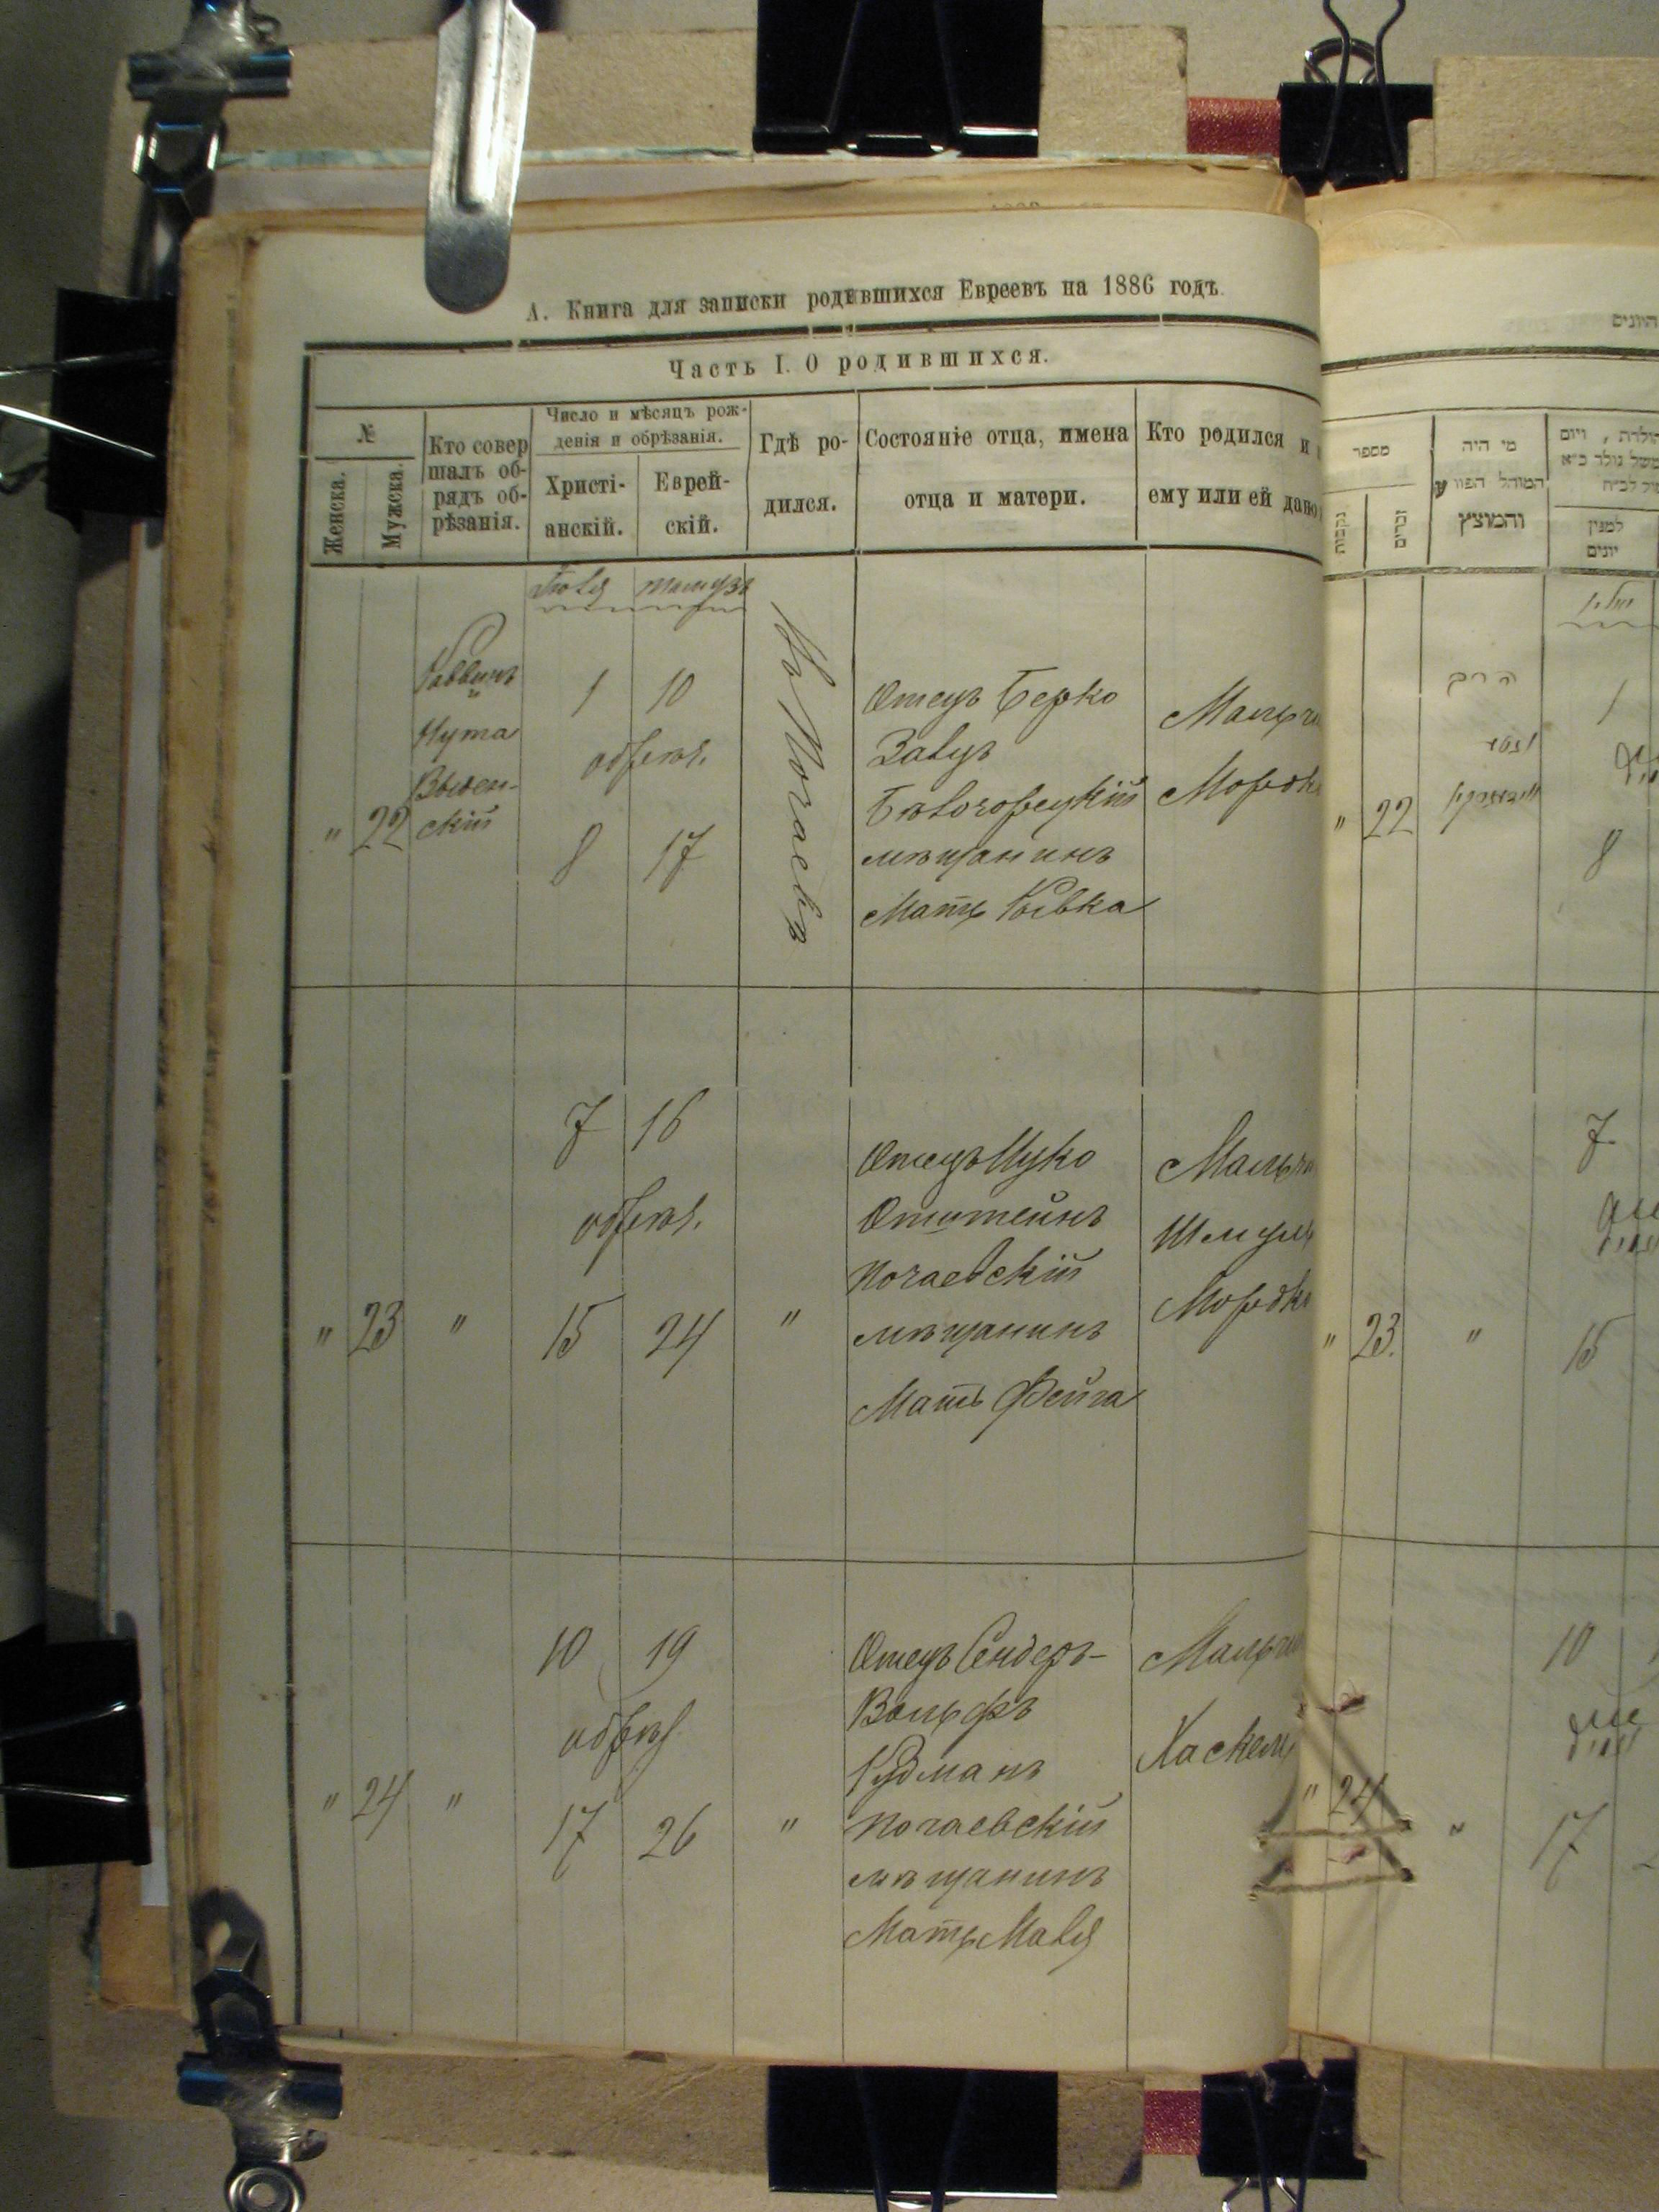 А. Книга для записки родившихся Евреевъ на 1886 годъ.
Часть I. О родившихся.
№
Женска.
Мужска.
Кто совер
шалъ об-
рядъ об-
рѣзанія.
Число и мѣсяцъ рож-
денія и обрѣзанія.
Христі-
анскій.
Еврей-
скій.
Гдѣ ро-
дился.
Состояніе отца, имена
отца и матери.
Кто родился и
ему или ей дано
Іюля
тамузъ
" 22
Раввинъ
Нута
скій
1 10
обрѣз.
8 17
Въ Почаевѣ
Отецъ Берко
Завцъ
Бѣлогорецкій
мѣщанинъ
Мать Ривка
Мальчи
Мордк
7 16
обрѣз.
" 23 " 15 24 "
Отецъ Ицко
Отштейнъ
Почаевскій
мѣщанинъ
Мать Фейга
Мальчи
Шмуль
Мордк
10 19
обрѣз.
" 24 " 17 26 "
Отецъ Сендеръ-
Вольфъ
Гудманъ
Почаевскій
мѣщанинъ
Мать Маля
Мальчи
Хаскель
מספר
נקבות
זכרים
מי היה
המוהל הפורע
והמוצץ
למנין
יונים
יולי
הרב
נטע
1
8
" 22
7
" 23. " 15
10
" 24 " 17